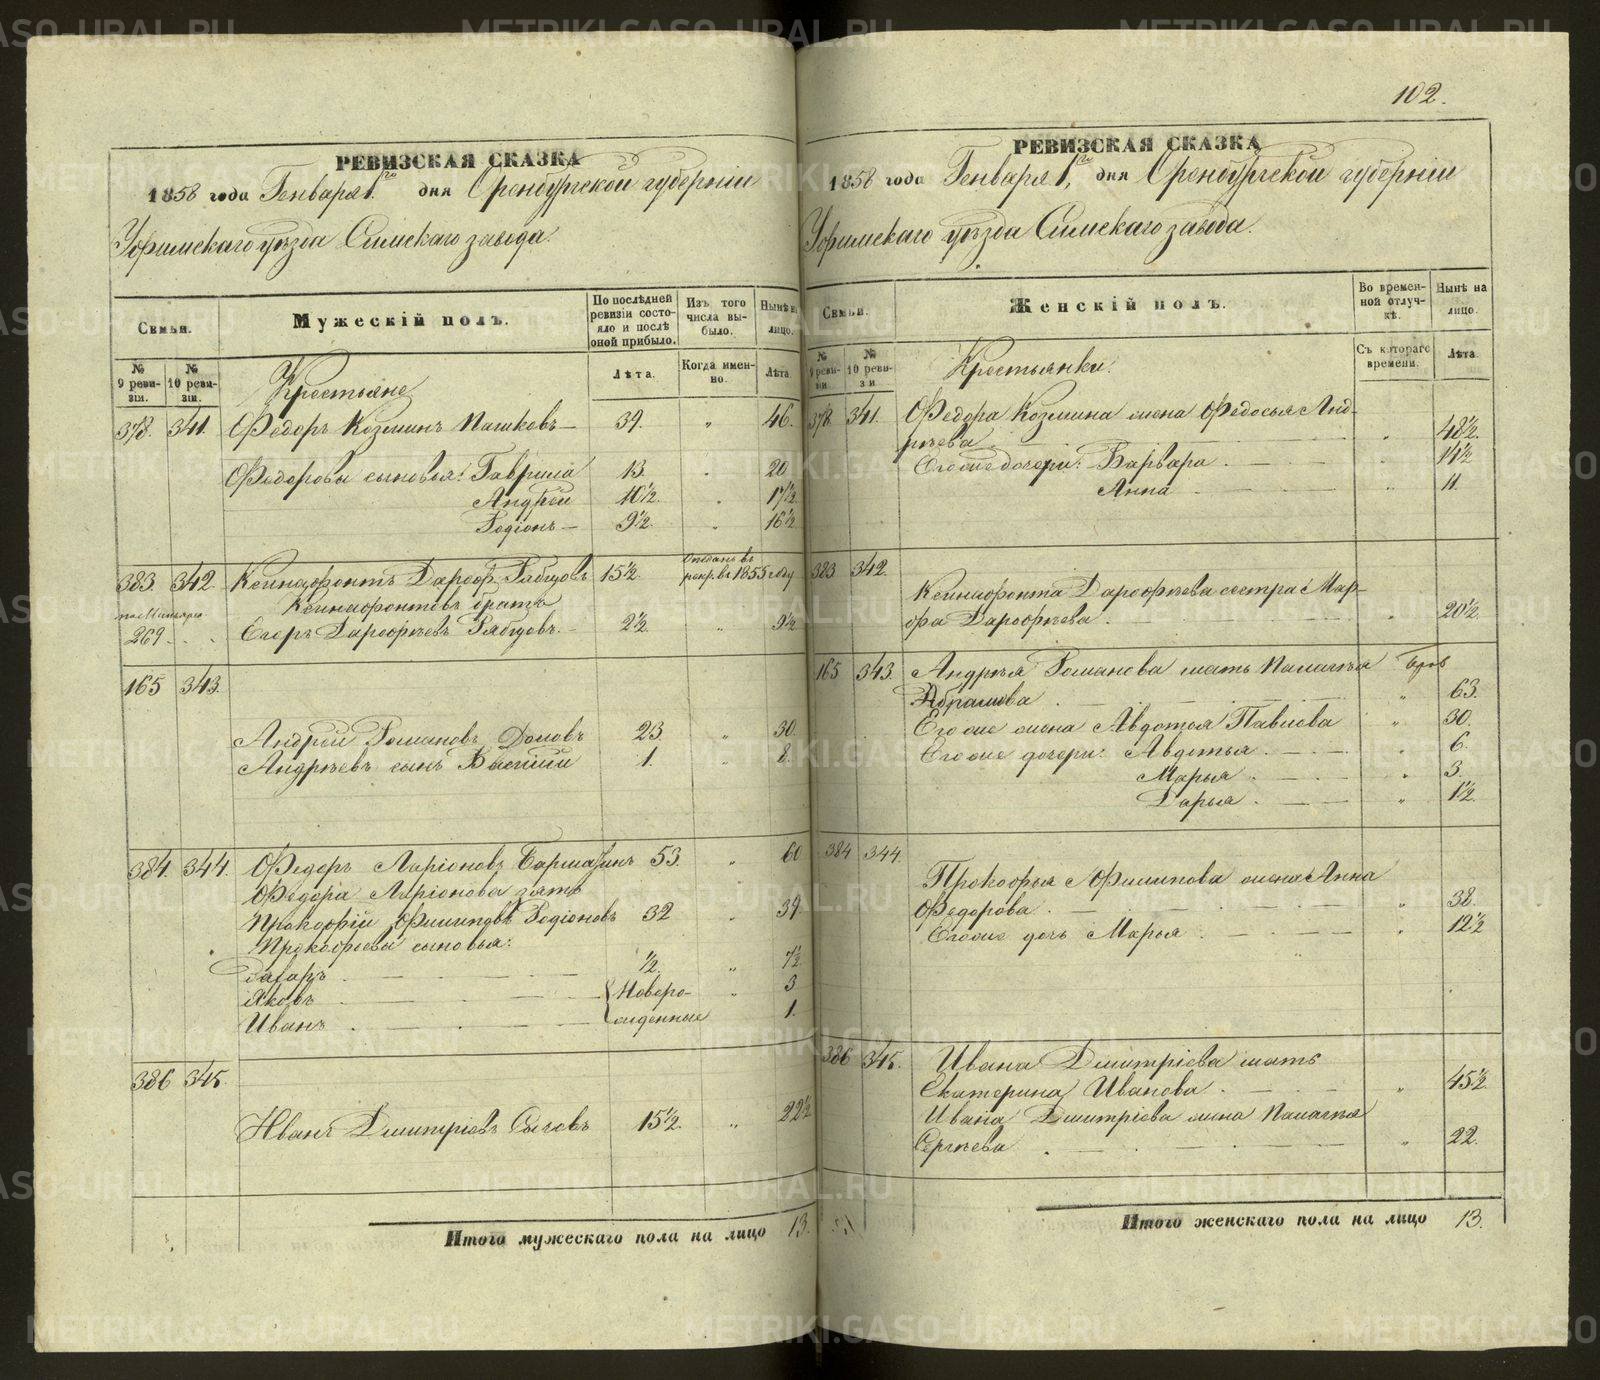 102.
РЕВИЗСКАЯ СКАЗКА
1858 года Генваря 1го дня Оренбургской губерніи
Уфимскаго уѣзда Симскаго завода.
Семьи.
Мужескій полъ.
По послѣдней ревизіи состояло и послѣ оной прибыло.
Изъ того числа выбыло.
Нынѣ на лицо.
№ 9 ревизіи.
№ 10 ревизіи.
Крестьяне
Лѣта.
Когда именно.
Лѣта.
378. 341. Федоръ Козминъ Пашковъ — 39. " 46.
Федоровы сыновья: Гаврила 13. " 20
Андрей 10½. " 17½
Родіонъ — 9½. " 16½
383. 342. Ксинофонтъ Дороф. Рябцовъ 15½. Отданъ въ рекр. въ 1855 году
Ксинофонтовъ братъ
269 Егоръ Дорофѣевъ Рябцовъ. — 2½. " 9½
165 343.
Андрей Романовъ Домовъ 23 " 30.
Андрѣевъ сынъ Василій 1. " 8.
384. 344. Федоръ Ларіоновъ 53. " 60
Федора Ларіонова зять
Прокофій Филиповъ Родіоновъ 32 " 39.
Прокофьевы сыновья:
Захаръ ½. " 7½
Яковъ Новоро- " 3
Иванъ жденные 1.
386 345.
Иванъ Дмитріевъ Сычовъ 15½. " 22½
Итого мужескаго пола на лицо 13.
РЕВИЗСКАЯ СКАЗКА
1858 года Генваря 1го, дня Оренбургской губерніи
Уфимскаго уѣзда Симскаго завода.
Семьи.
Женскій полъ.
Во временной отлучкѣ.
Нынѣ на лицо.
№ 9 ревизіи.
№ 10 ревизіи
Крестьянки.
Съ котораго времени.
Лѣта.
378. 341. Федора Козмина жена Федосья Анд-
рѣева " 48½.
Его же дочери: Варвара 14½
Анна " 11.
383 342.
Ксинофонта Дорофѣева сестра Мар-
фа Дорофѣева. " 20½.
165 343. Андрѣя Романова мать Палагѣя
Абрамова " 63.
Его же жена Авдотья Павлова " 30.
Его же дочери: Авдотья " 6.
Марья " 3.
Дарья " 1½.
384 344.
Прокофья Филипова жена Анна
Федорова " 38.
Его же дочь Марья " 12½
386 345. Ивана Дмитріева мать
Екатерина Иванова " 45½
Ивана Дмитріева жена Палагѣя
Сергѣева " 22.
Итого женскаго пола на лицо 13.
METRIKI.GASO-URAL.RU